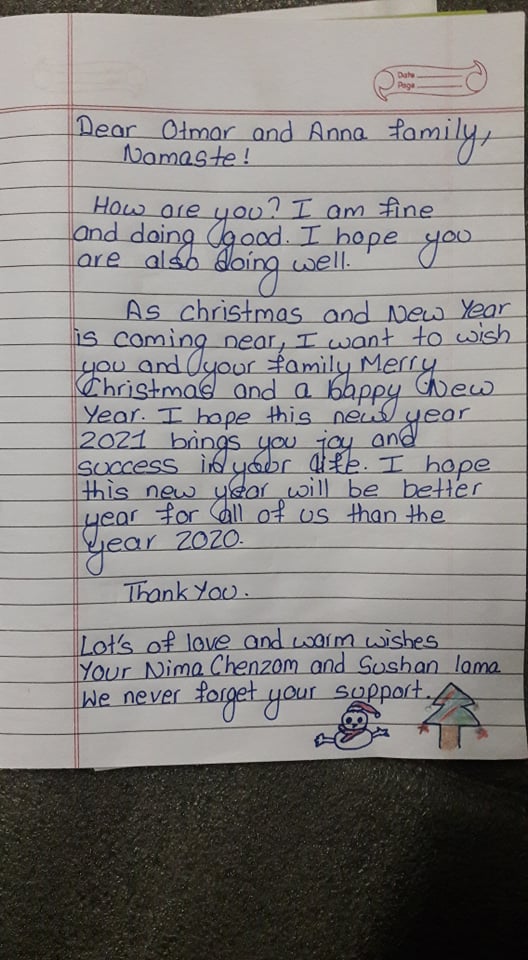 Date
Page
Dear Otmar and Anna family,
Namaste!
How are you? I am fine
and doing good. I hope you
are also doing well.
As christmas and New Year
is coming near, I want to wish
you and your family Merry
Christmas and a happy New
Year. I hope this new year
2021 brings you joy and
success in your life. I hope
this new year will be better
year for all of us than the
year 2020.
Thank You.
Lot's of love and warm wishes
Your Nima Chenzom and Sushan lama
We never forget your support.